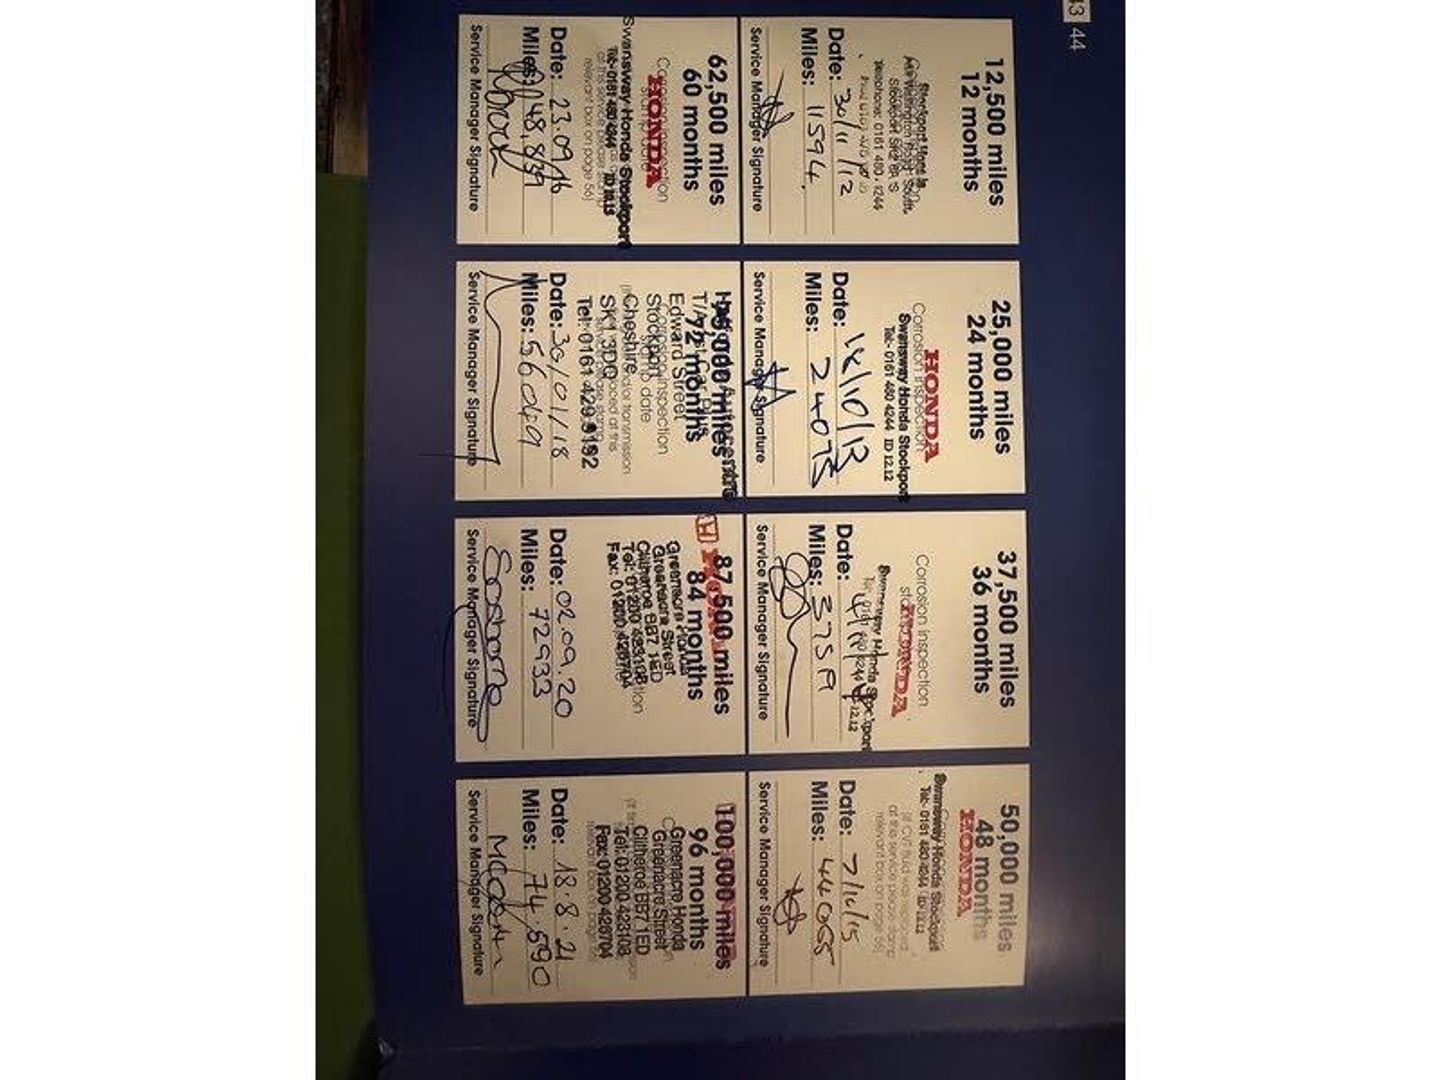 43 44
12,500 miles
12 months
Stockport
Stockport SK2
Telephone: 0161 480 4244
Date: 30/11/12
Miles: 11594
Service Manager Signature
25,000 miles
24 months
HONDA
Corrosion inspection
Swansway Honda Stockport
Tel:- 0161 480 4244 ID 12.12
Date: 14/10/13
Miles: 24075
Service Manager Signature
37,500 miles
36 months
Corrosion inspection
HONDA
Swansway Honda Stockport
Tel:- 0161 480 4244 ID 12.12
Date:
Miles: 37519
Service Manager Signature
50,000 miles
48 months
HONDA
Swansway Honda Stockport
Tel:- 0161 480 4244 ID 12.12
(if CVT fluid is replaced
at this service please stamp
relevant box on page 56)
Date: 7/10/15
Miles: 44065
Service Manager Signature
62,500 miles
60 months
Corrosion inspection
HONDA
Swansway Honda Stockport
Tel:- 0161 480 4244
relevant box on page 56)
Date: 23.09.16
Miles: 48,839
Service Manager Signature
75,000 miles
72 months
Edward Street
Stockport
Corrosion inspection
Cheshire
SK1 3DQ
Tel: 0161 429 9192
Date: 30/01/18
Miles: 56049
Service Manager Signature
87,500 miles
84 months
HONDA
Greenacre Honda
Greenacre Street
Clitheroe BB7 1ED
Tel: 01200 423108
Fax: 01200 426704
Date: 02.09.20
Miles: 72933
Service Manager Signature
100,000 miles
96 months
Greenacre Honda
Greenacre Street
Clitheroe BB7 1ED
Tel: 01200 423108
Fax: 01200 426704
Date: 18.8.21
Miles: 74,590
Service Manager Signature